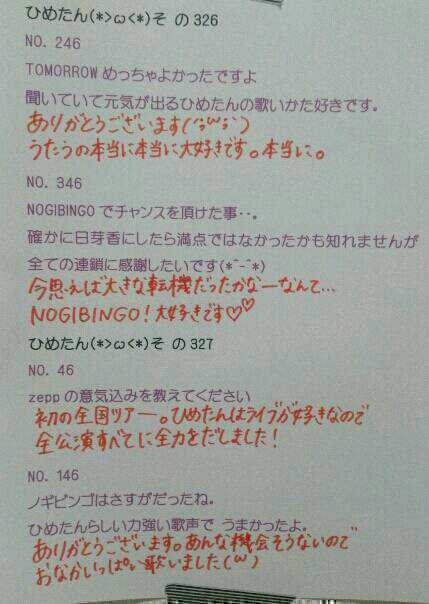 ひめたん(*>ω<*)そ の326
NO. 246
TOMORROWめっちゃよかったですよ
聞いていて元気が出るひめたんの歌いかた好きです。
ありがとうございます(´;ω;`)
うたうの本当に本当に大好きです。本当に。
NO. 346
NOGIBINGOでチャンスを頂けた事・・。
確かに日芽香にしたら満点ではなかったかも知れませんが
全ての連鎖に感謝したいです(*^-^*)
今思えば大きな転機だったかなーなんて…
NOGIBINGO!大好きです♡♡
ひめたん(*>ω<*)そ の327
NO. 46
zeppの意気込みを教えてください
初の全国ツアー。ひめたんはライブが好きなので
全公演すべてに全力をだしました!
NO. 146
ノギビンゴはさすがだったね。
ひめたんらしい力強い歌声で うまかったよ。
ありがとうございます。あんな機会そうないので
おなかいっぱい歌いました(ω)